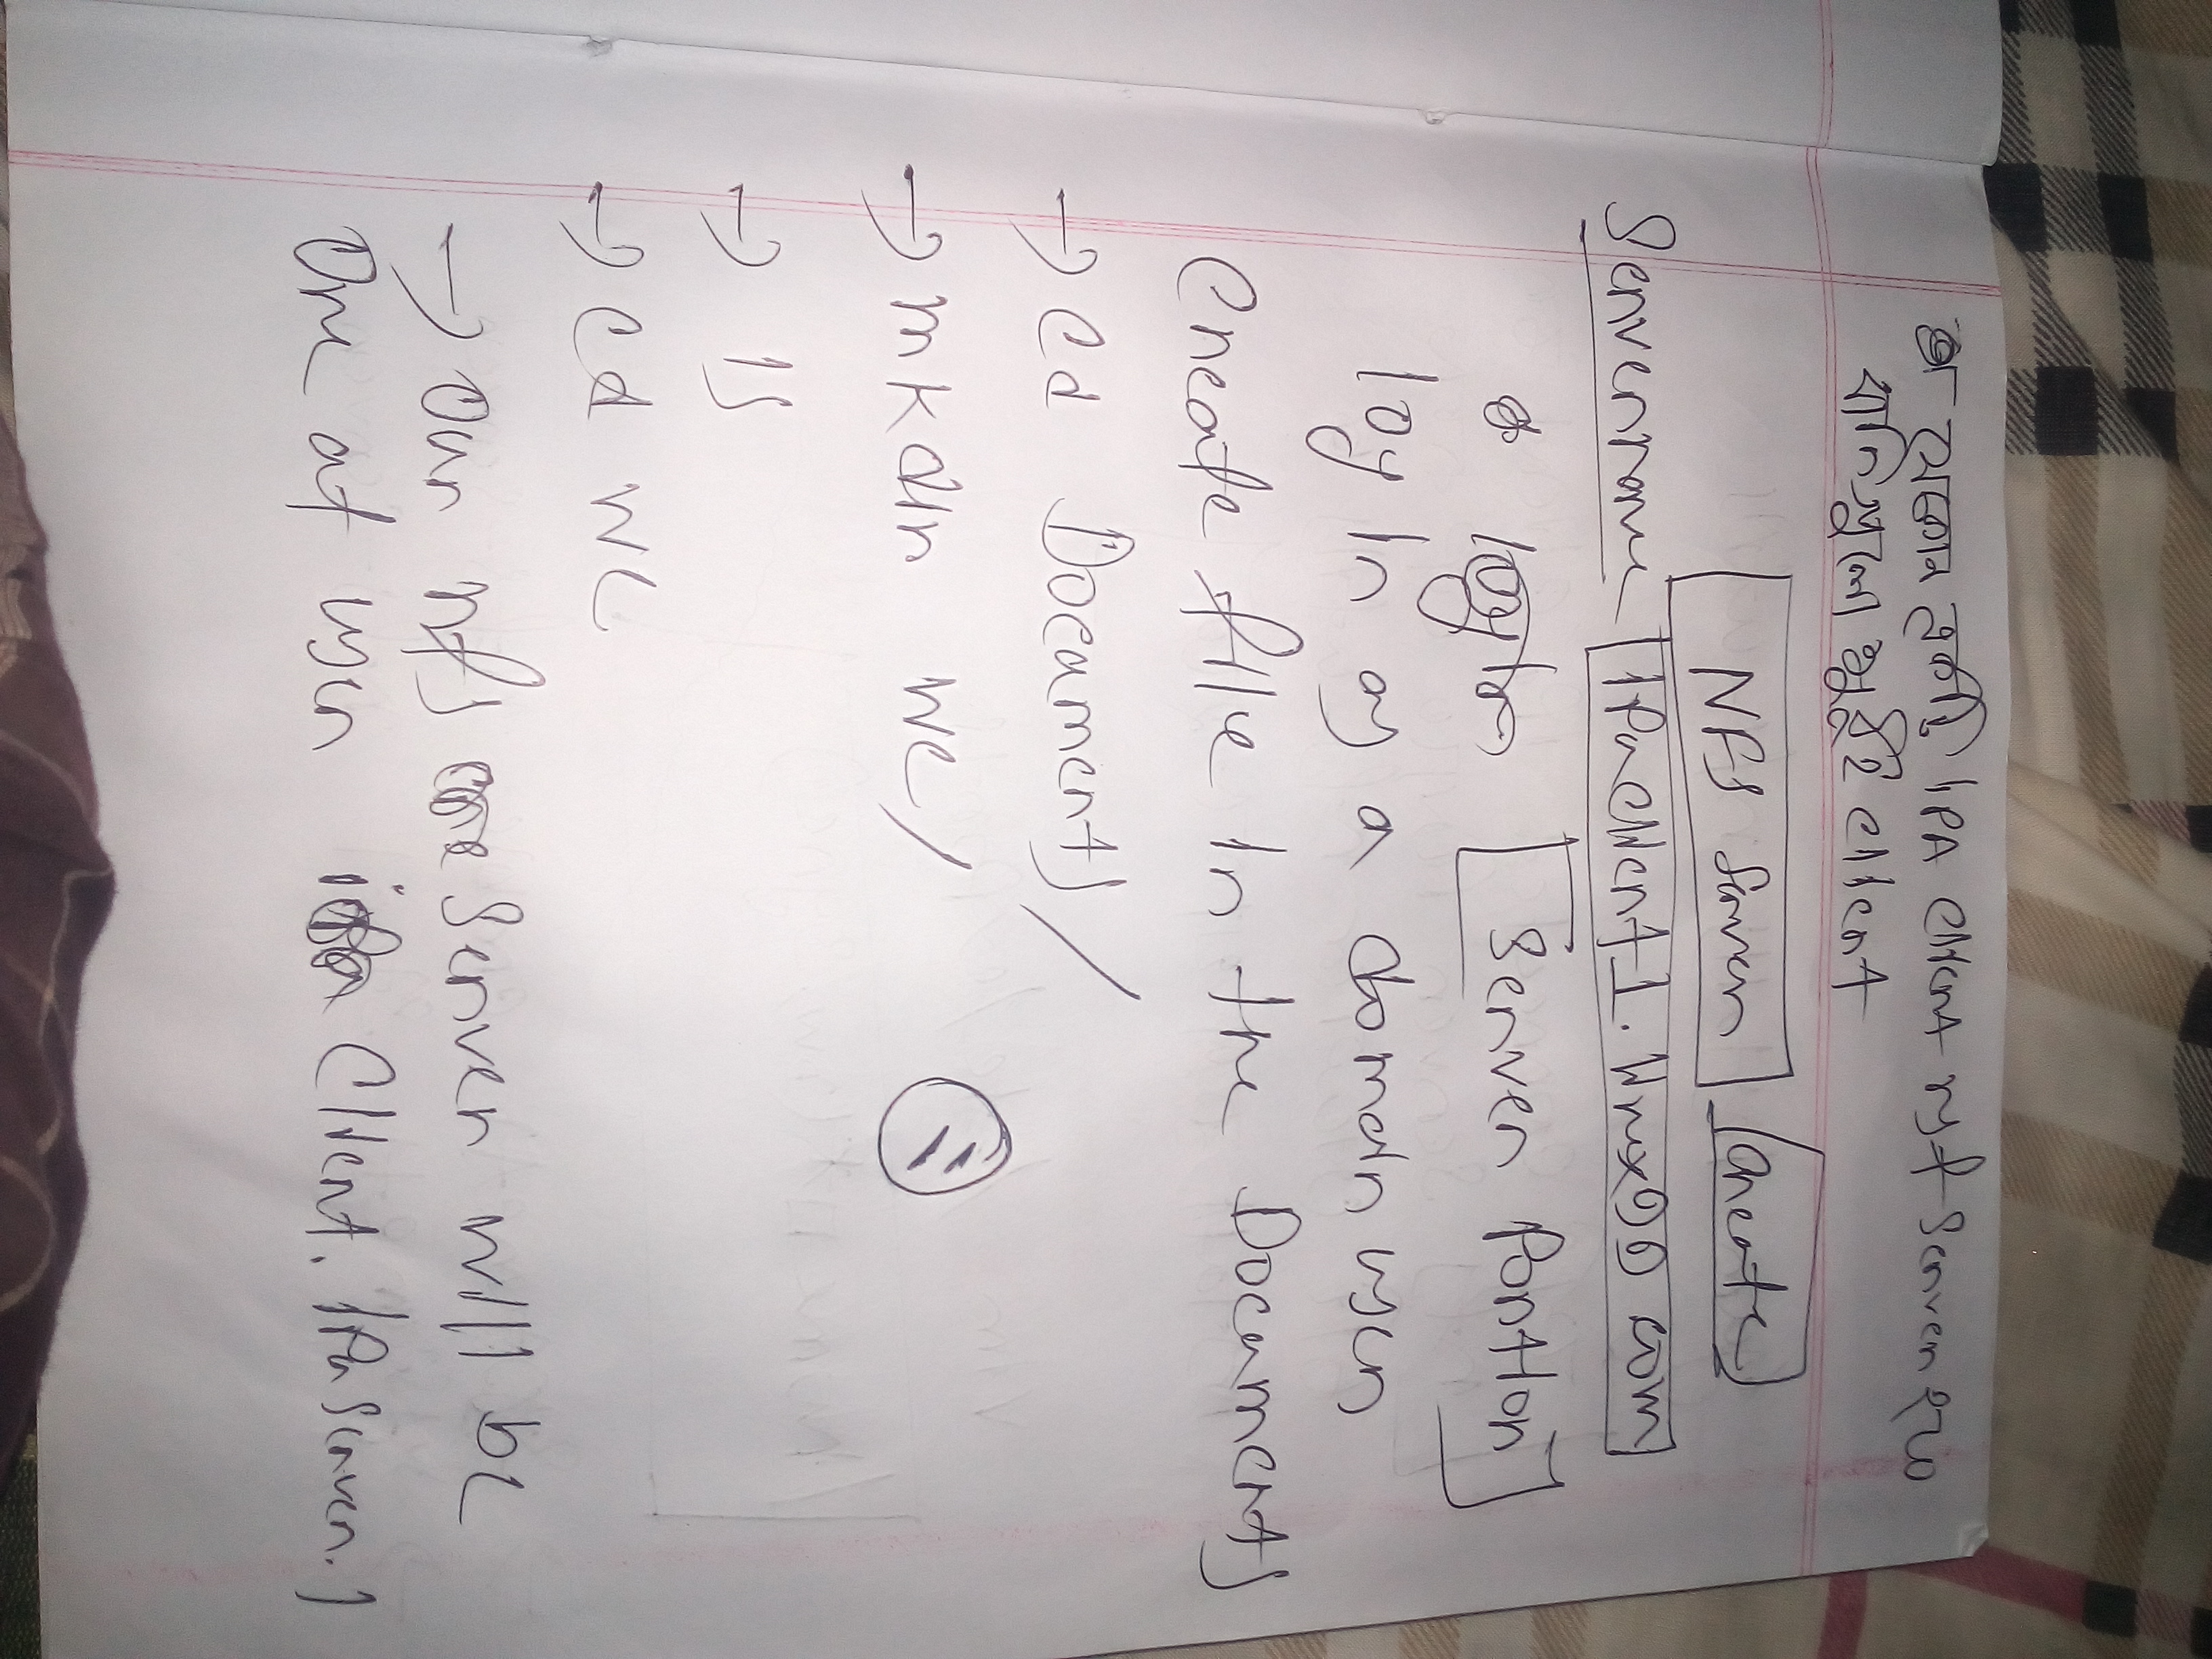 যেকোন একটি IPA client nfs server হবে
বাকিগুলো হইবে client
NFS Server Create
Servername IPaclient1.linux00 com
login Server Portion
log in as a domain user
Create file in the Documents
→ cd Documents/
→ mkdir we/
→ ls
→ cd we
→ Our nfs server will be
One at user Client. IPa server.1